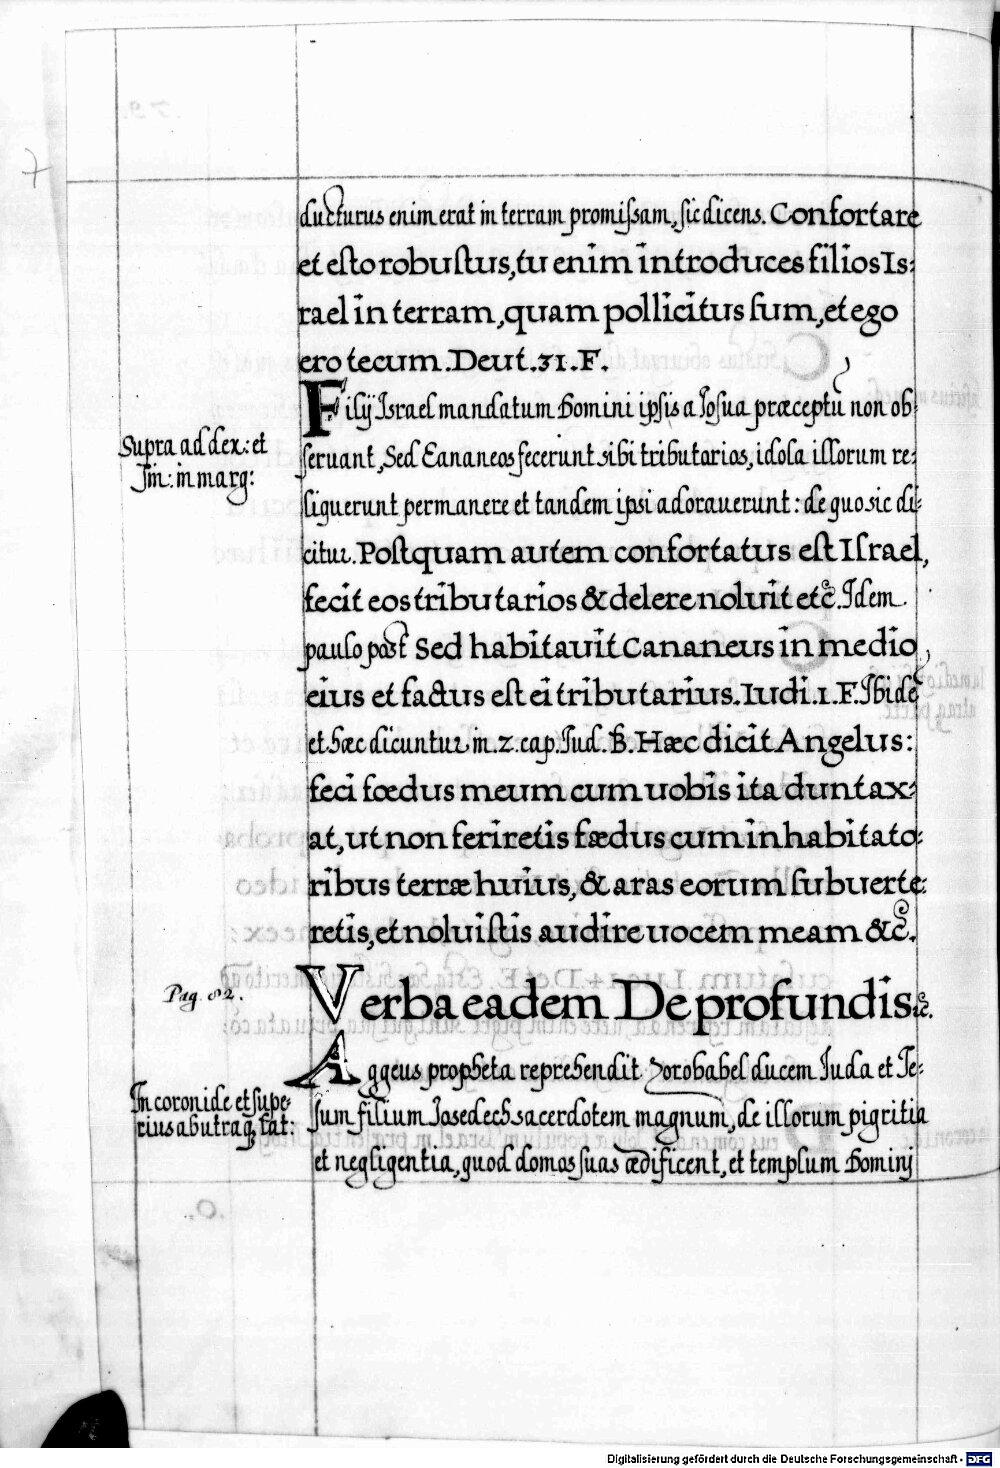 ducturus enim erat in terram promissam, sic dicens. Confortare
et esto robustus, tu enim introduces filios Is:
rael in terram, quam pollicitus sum, et ego
ero tecum. Deut. 31. F.
Filij Israel mandatum Domini ipsis a Josua præceptū non ob:
Supra ad dex: et
Jm: in marg:
seruant, Sed Cananeos fecerunt sibi tributarios, idola illorum re:
liquerunt permanere et tandem ipsi adorauerunt: de quo sic di:
citur. Postquam autem confortatus est Israel,
fecit eos tributarios & delere noluit etc̃. Idem
paulo post Sed habitauit Cananeus in medio
eius et factus est ei tributarius. Iudi. 1. F. Ibidē
et hæc dicuntur in 2. cap. Jud. B. Hæc dicit Angelus:
feci fœdus meum cum uobis ita duntax:
at, ut non feriretis fædus cum inhabitato:
ribus terræ huius, & aras eorum subuerte:
retis, et noluistis audire uocem meam &c̃.
Pag. 82.
Verba eadem De profundis &c̃.
Aggeus propheta reprehendit Zorobabel ducem Juda et Je:
In coronide et supe:
rius ab utraq, lat:
sum filium Josedech sacerdotem magnum, de illorum pigritia
et negligentia, quod domos suas ædificent, et templum Domini
Digitalisierung gefördert durch die Deutsche Forschungsgemeinschaft - DFG